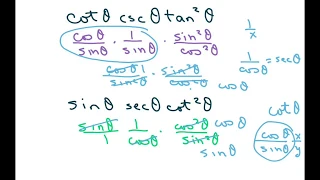 cotθ cscθ tan²θ
cosθ/sinθ · 1/sinθ · sin²θ/cos²θ
1/x
cosθ/sinθ 1/sinθ · sin²θ/cos²θ cosθ
1/cosθ = secθ
sinθ secθ cot²θ
sinθ/1 1/cosθ · cos²θ/sin²θ cosθ sinθ
cotθ
cosθ/sinθ x/y